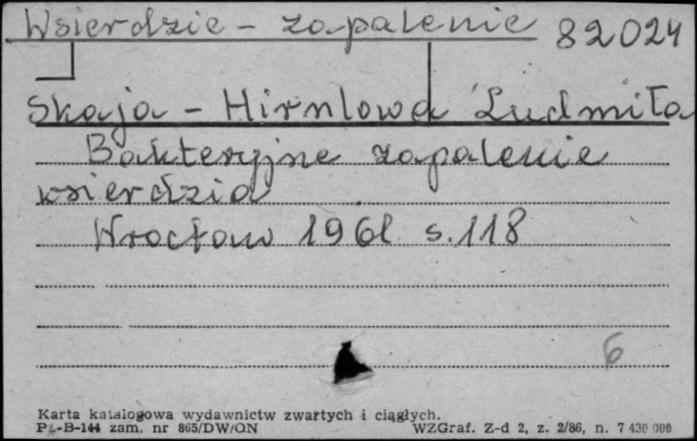 Wsierdzie - zapalenie 82024
Skaja - Hirnlowa Ludmiła
Bakteryjne zapalenie
wsierdzia
Wrocław 1961 s. 118
6
Karta katalogowa wydawnictw zwartych i ciągłych.
Pu-B-144 zam. nr 865/DW/ON WZGraf. Z-d 2, z. 2/86, n. 7 430 000